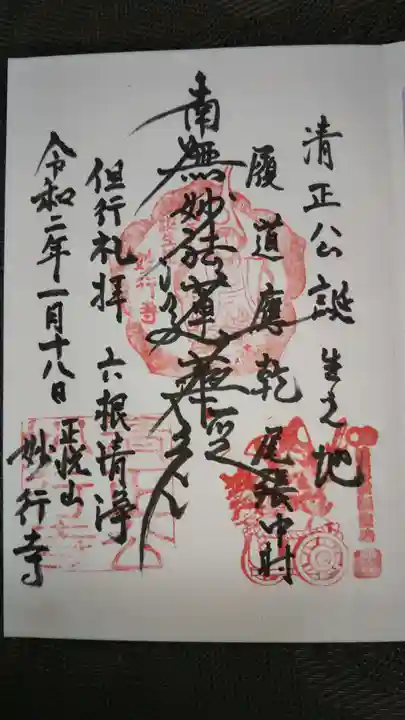 清正公誕生之地
履道應乾 尾張中村
南無妙法蓮華経
但行礼拝 六根清浄
令和二年一月十八日
正悦山
妙行寺
妙行寺